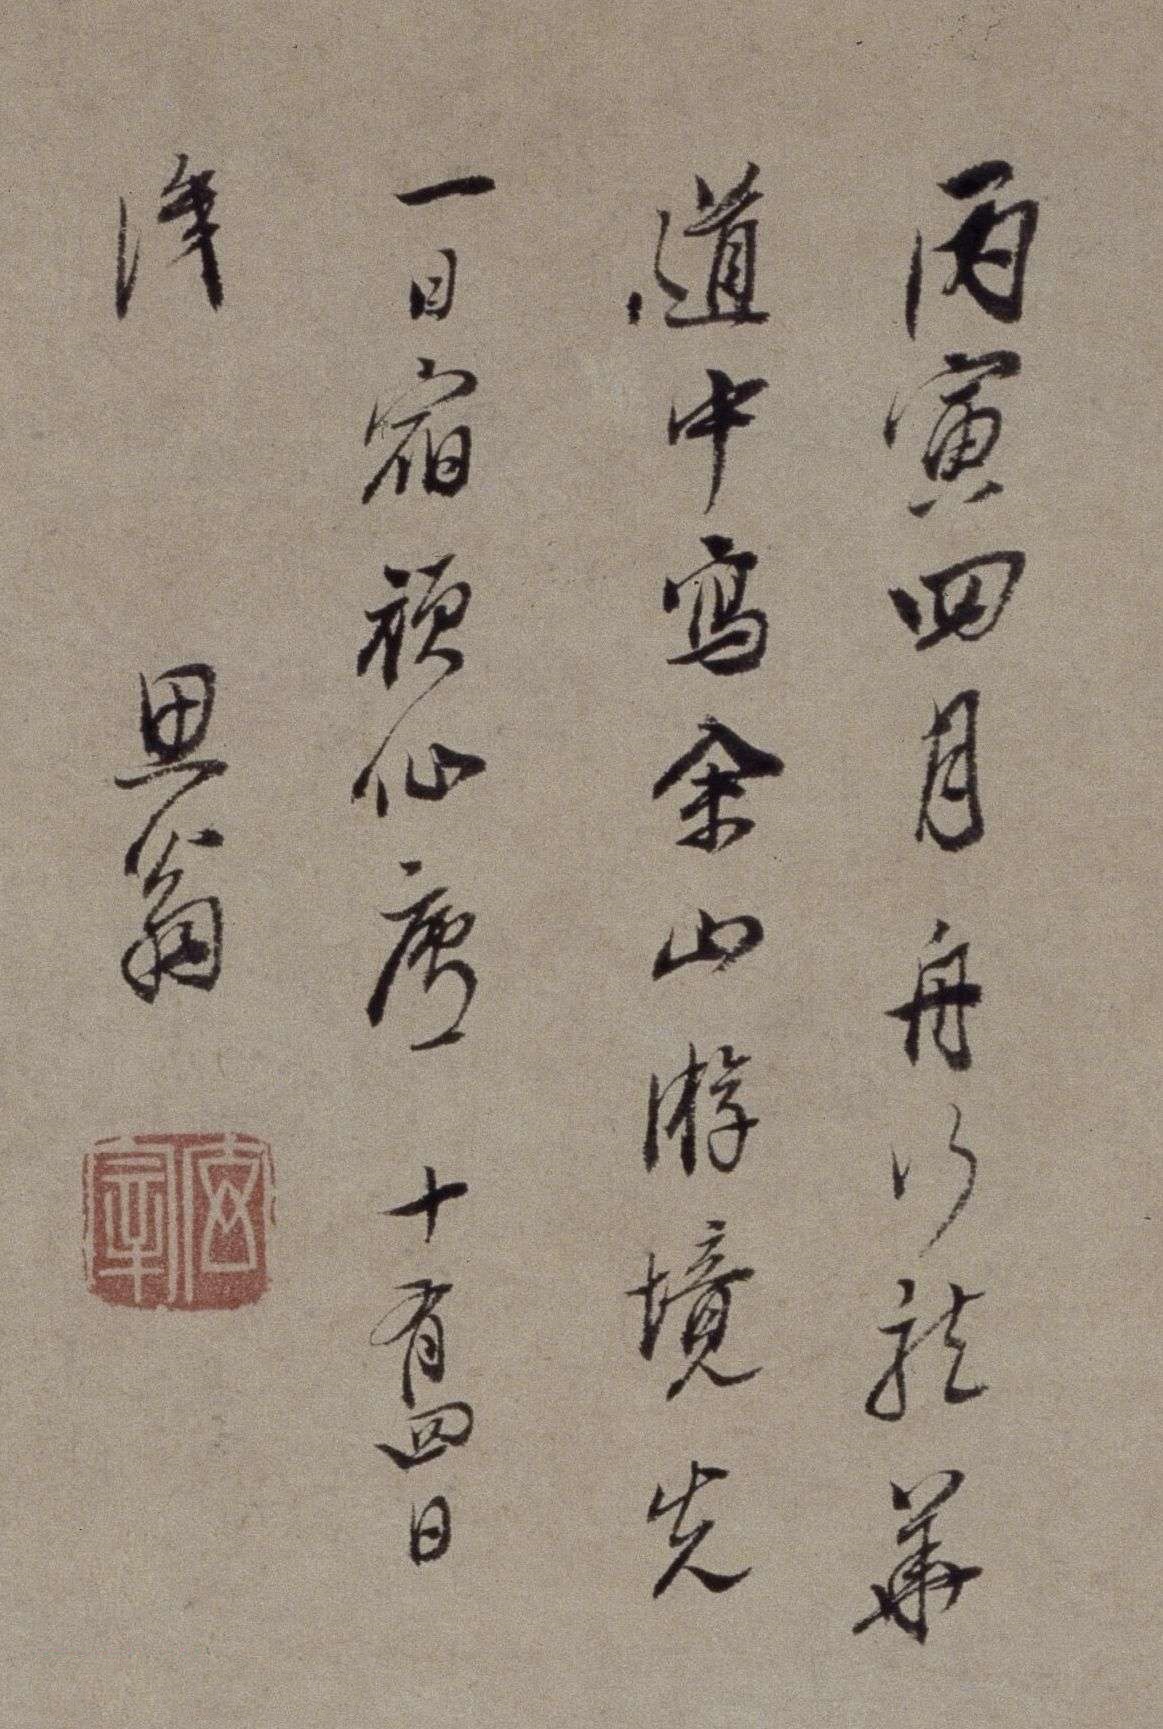 丙寅四月舟行龍華
道中寫佘山游境先
一日宿頑仙廬十有四日
識
思翁